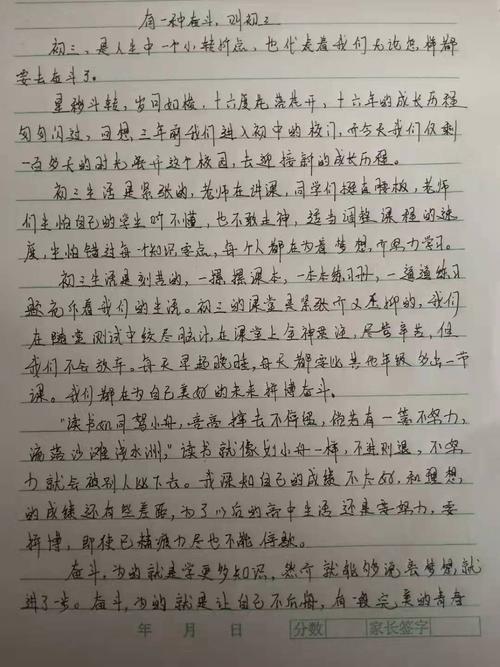 有一种奋斗，叫初三
初三，是人生中一个小转折点，也代表着我们无论怎样都
要去奋斗了。
星移斗转，岁月如梭，十六度花落花开，十六年的成长历程
匆匆闪过，回想三年前我们进入初中的校门，而今天我们仅剩
一百多天的时光离开这个校园，去迎接新的成长历程。
初三生活是紧张的，老师在讲课，同学们挺直腰板，老师
们生怕自己的学生听不懂，也不敢走神，适当调整课程的速
度，生怕错过每个知识要点，每个人都在为着梦想，而努力学习。
初三生活是刻苦的，一摞摞课本，一本本练习册，一道道练习
题充斥着我们的生活。初三的课堂是紧张而又压抑的，我们
在随堂测试中绞尽脑汁，在课堂上全神贯注，尽管辛苦，但
我们不会放弃。每天早起晚睡，每天都要比其他年级多出一节
课。我们都在为自己美好的未来拼博奋斗。
“读书如同驾小舟，高高撑去不停留，倘若有一篙不努力，
流落沙滩浅水洲，”读书就像划小舟一样，不进则退，不努
力就会被别人比下去。我深知自己的成绩不太好，和理想
的成绩还有些差距，为了以后的高中生活还是要努力，要
拼博，即使已精疲力尽也不能停歇。
奋斗，为的就是学更多知识，然而就能够说离梦想就
进了一步。奋斗，为的就是让自己不后悔，有一段完美的青春
年 月 日 分数 家长签字